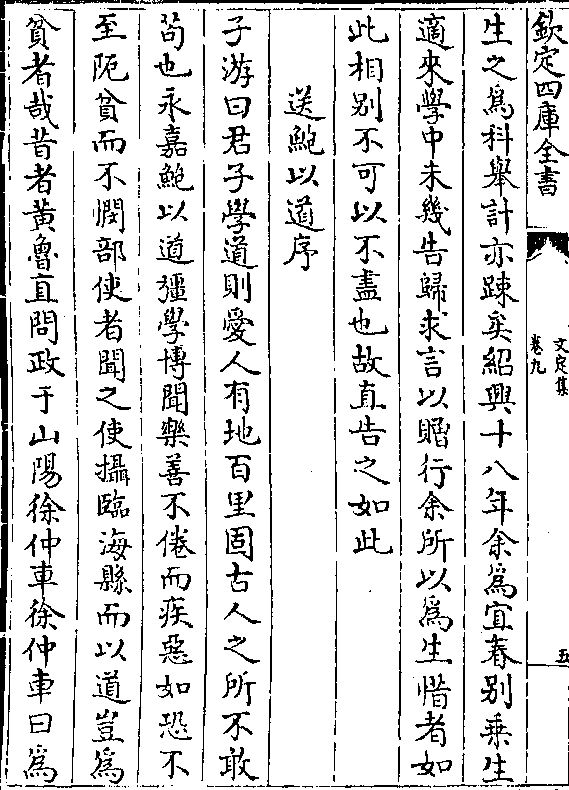 欽定四庫全書
文定集
卷九
五
生之為科舉計亦疎矣紹興十八年余為宜春別乗生
適來學中未幾告歸求言以贈行余所以為生惜者如
此相別不可以不盡也故直告之如此
送鮑以道序
子游曰君子學道則愛人有地百里固古人之所不敢
茍也永嘉鮑以道彊學博聞樂善不倦而疾惡如恐不
至阨貧而不憫部使者聞之使攝臨海縣而以道豈為
貧者哉昔者黃魯直問政于山陽徐仲車徐仲車曰為